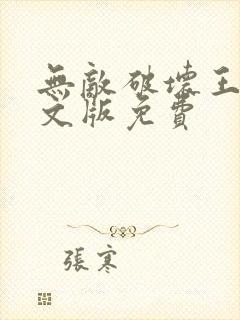 無敵破壞王
文版免費
張寒